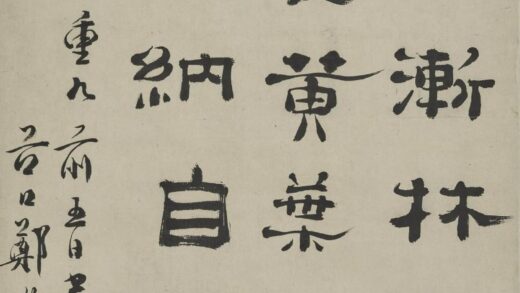 漸林
黄葉
納自
重九前五日
谷口鄭